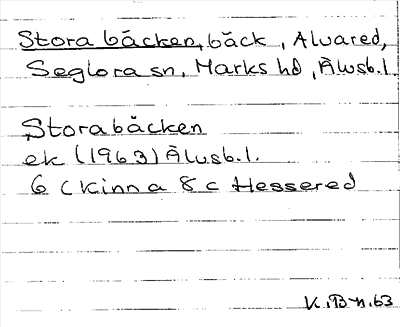 Stora bäcken, bäck, Alvared,
Seglora sn, Marks hd, Älvsb.l.
Stora bäcken
ek (1963) Älvsb.l.
6 c Kinna 8 c Hessered
K.B-n.63